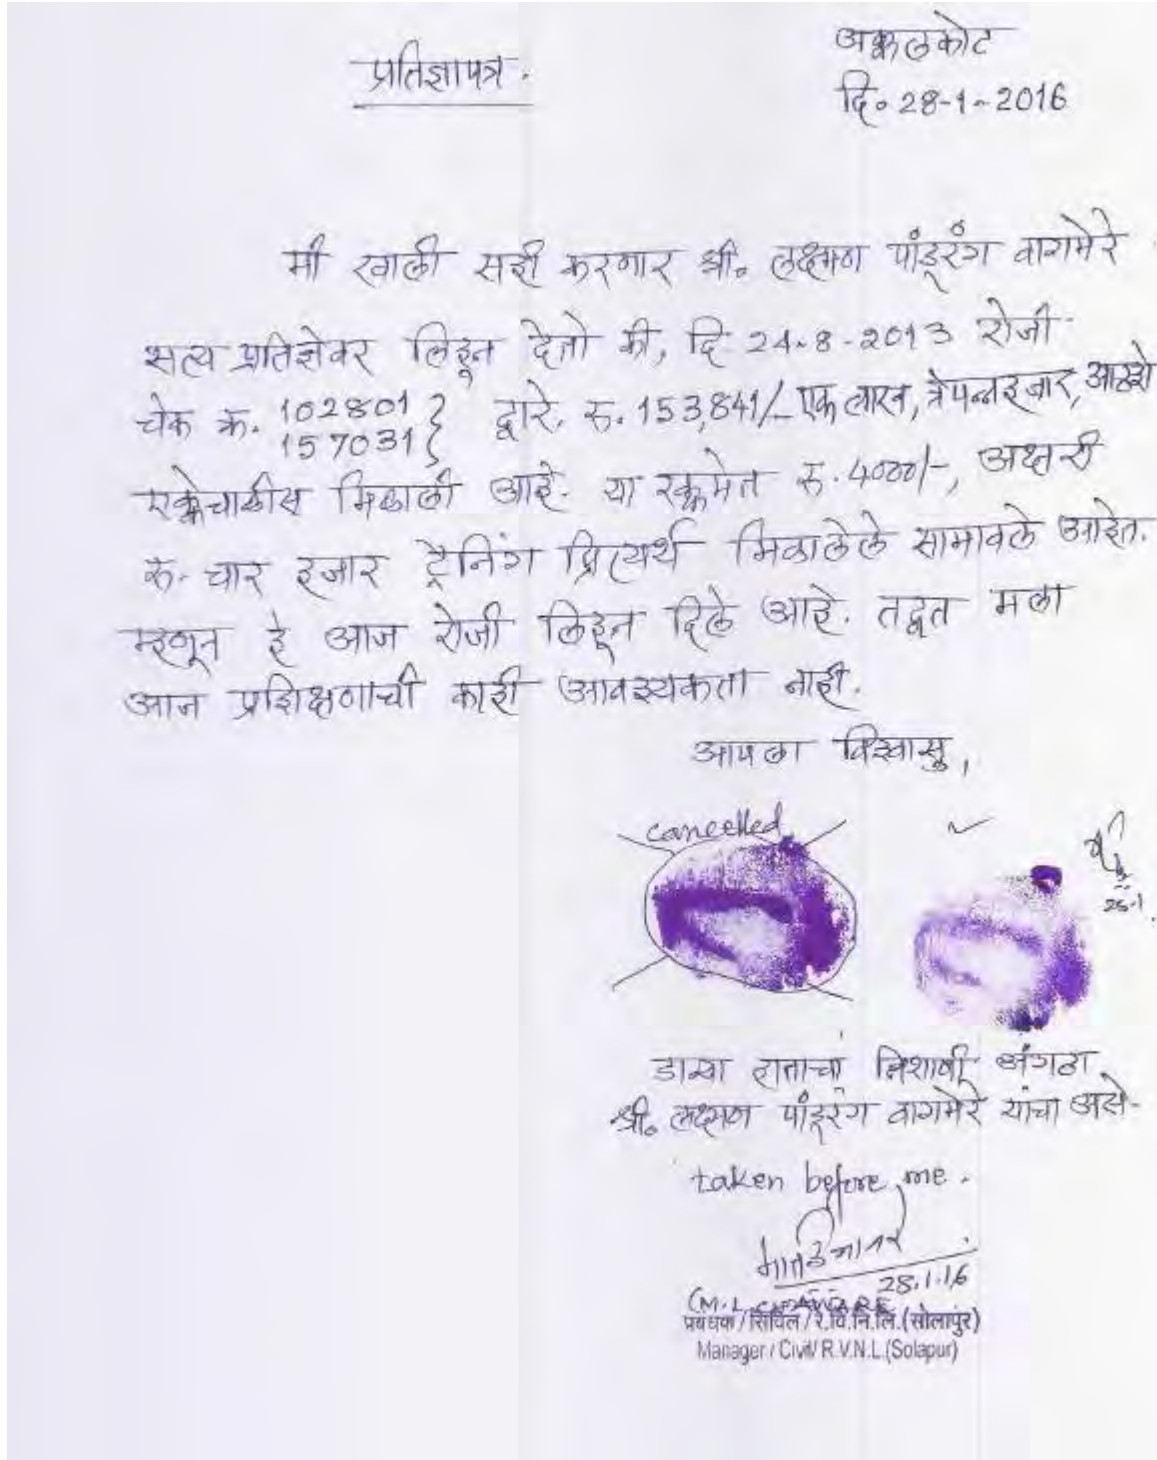 अक्कलकोट
प्रतिज्ञापत्र.
दि. 28-1-2016
मी खाली सही करणार श्री. लक्ष्मण पांडूरंग वागमेरे
सत्य प्रतिज्ञेवर लिहून देतो की, दि 24-8-2013 रोजी
चेक क्र. 102801 } द्वारे. रु. 153,841/- एक लाख, त्रेपन्नहजार, आठशे
157031 }
एक्केचाळीस मिळाली आहे. या रक्कमेत रु. 4000/-, अक्षरी
रु. चार हजार ट्रेनिंग प्रित्यर्थ मिळालेले सामावले आहेत.
म्हणून हे आज रोजी लिहून दिले आहे. तद्वत मला
आज प्रशिक्षणाची काही आवश्यकता नाही.
आपला विश्वासु,
cancelled
डाव्या हाताचा निशाणी अंगठा
श्री. लक्ष्मण पांडूरंग वागमेरे यांचा असे-
taken before me.
28.1.16
प्रबंधक / सिविल / रे.वि.नि.लि. (सोलापुर)
Manager / Civil/ R.V.N.L.(Solapur)